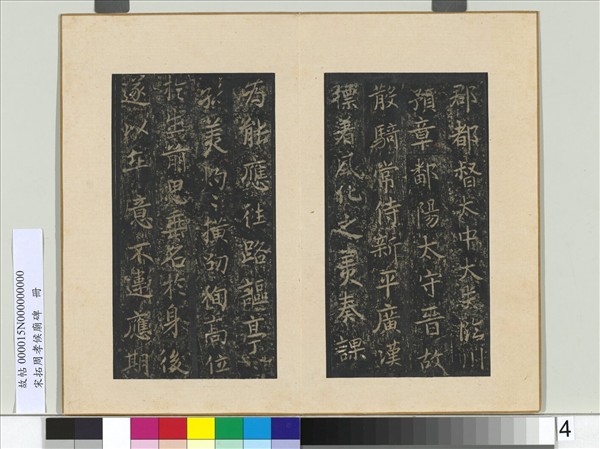 郡都督太中大夫臨川
預章鄱陽太守晉故
散騎常侍新平廣漢
摽著風化之美奏課
為能應往路謳亭
美昀〻橫劭徇高位
於生前思垂名於身後
遂以在意不違應期
故帖000015N000000000
宋拓周孝侯廟碑 冊
4